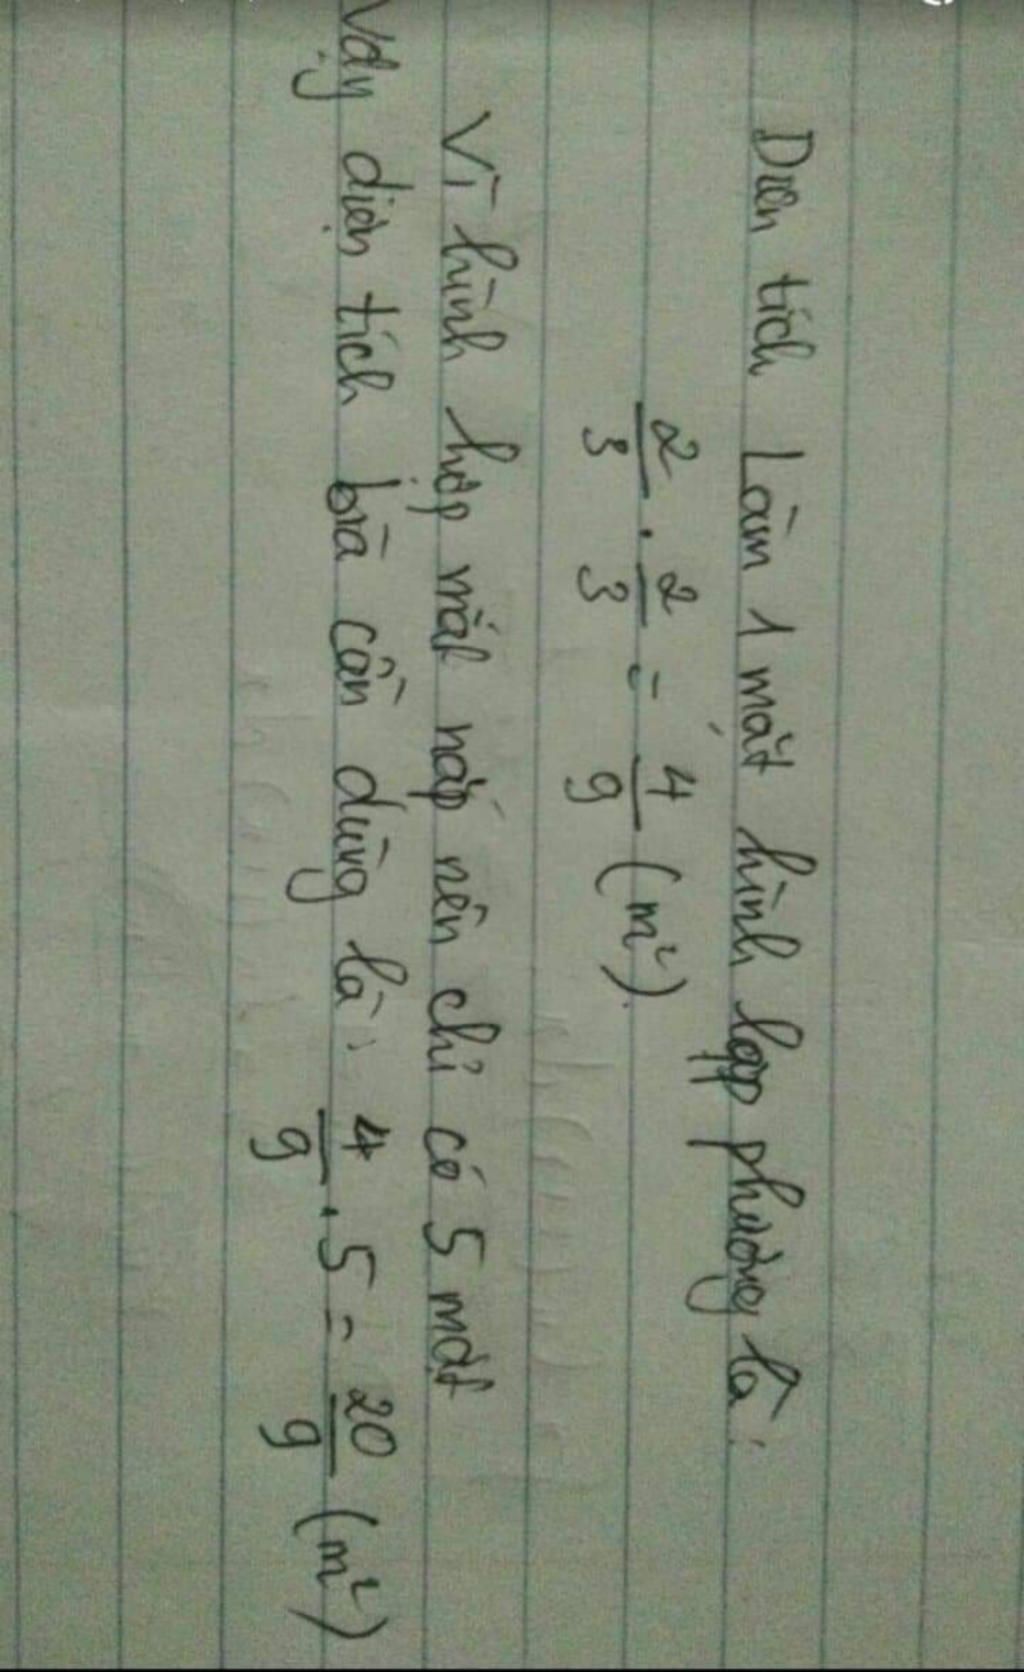 Diện tích Làm 1 mặt hình lập phương là:
2/3 . 2/3 = 4/9 (m²).
Vì hình hộp mất nắp nên chỉ có 5 mặt
Vậy diện tích bìa cần dùng là: 4/9 . 5 = 20/9 (m²)